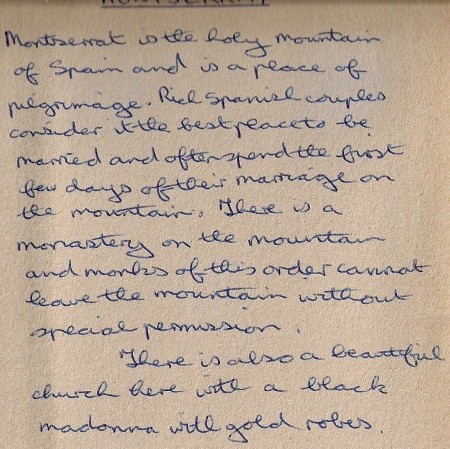 MONTSERRAT
Montserrat is the holy mountain
of Spain and is a place of
pilgrimage. Rich Spanish couples
consider it the best place to be
married and often spend the first
few days of their marriage on
the mountain. There is a
monastery on the mountain
and monks of this order cannot
leave the mountain without
special permission.
There is also a beautiful
church here with a black
madonna with gold robes.